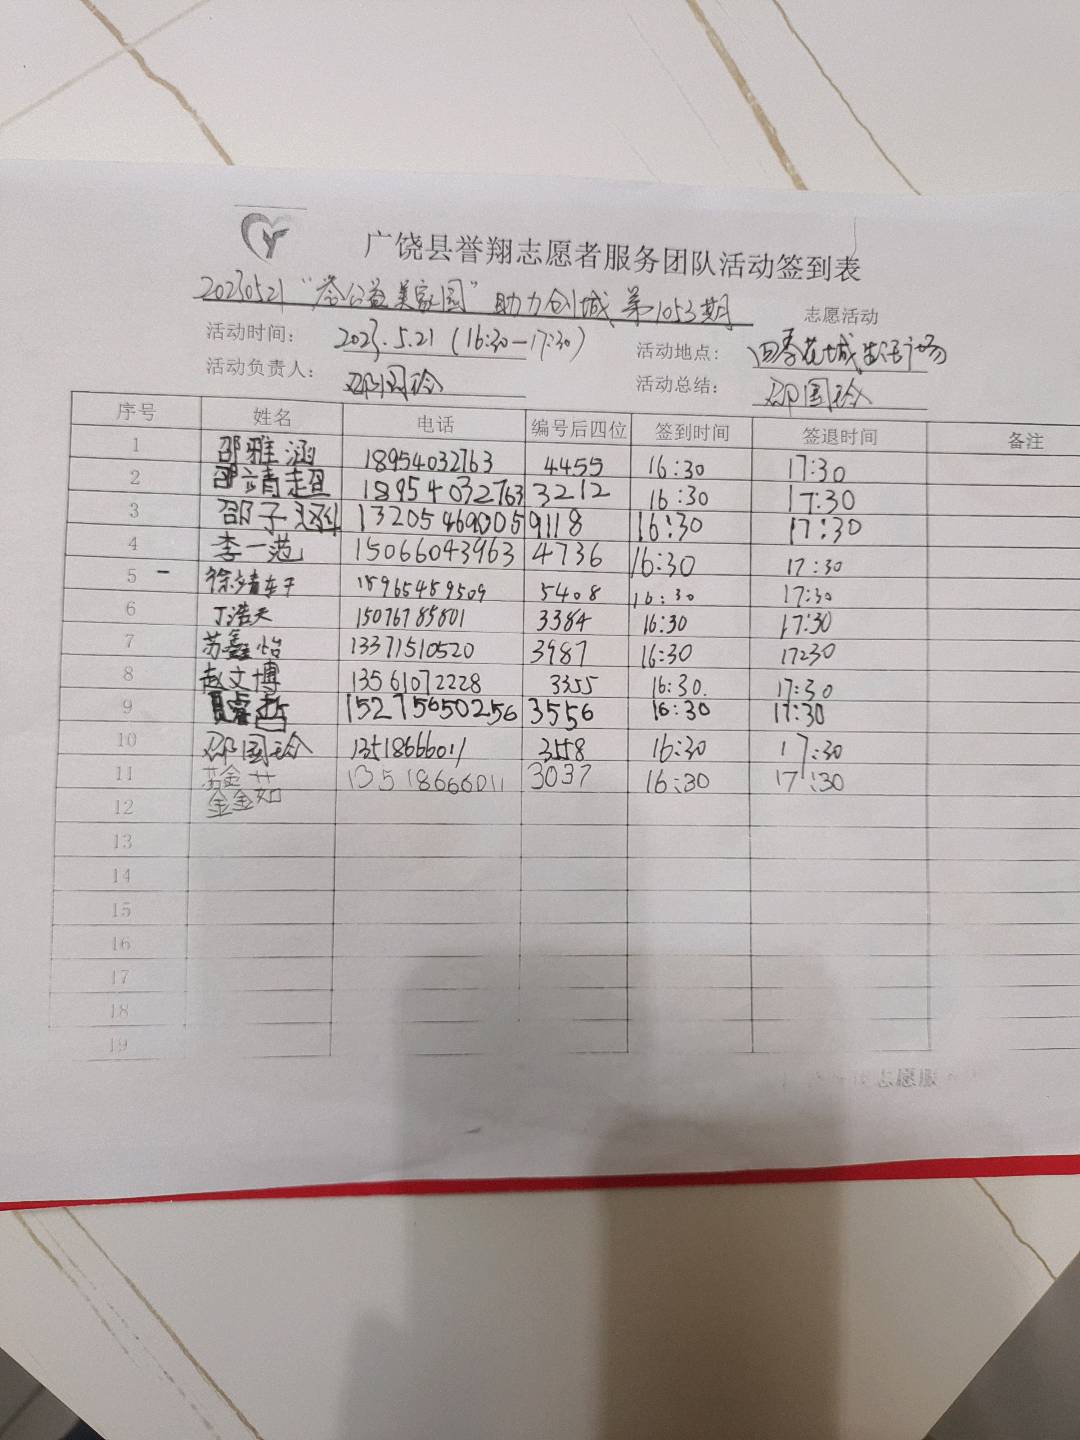 广饶县誉翔志愿者服务团队活动签到表
20230521 "公益美家园" 助力创城 第1053期 志愿活动
活动时间: 2023.5.21 (16:30—17:30) 活动地点: 四季花城生活广场
活动负责人: 邵国玲 活动总结: 邵国玲
序号 姓名 电话 编号后四位 签到时间 签退时间 备注
1 邵雅涵 18954032763 4455 16:30 17:30
2 邵靖超 18954032763 3212 16:30 17:30
3 邵子涵 13205469005 9118 16:30 17:30
4 李一范 15066043963 4736 16:30 17:30
5 徐 15965459509 5408 16:30 17:30
6 丁浩天 15076785801 3384 16:30 17:30
7 苏鑫怡 13371510520 3987 16:30 17:30
8 赵文博 13561072228 3355 16:30. 17:30
9 夏睿哲 15275650256 3556 16:30 17:30
10 邵国玲 13518666011 3558 16:30 17:30
11 13518666011 3037 16:30 17:30
12 金茹
13
14
15
16
17
18
19
志愿服